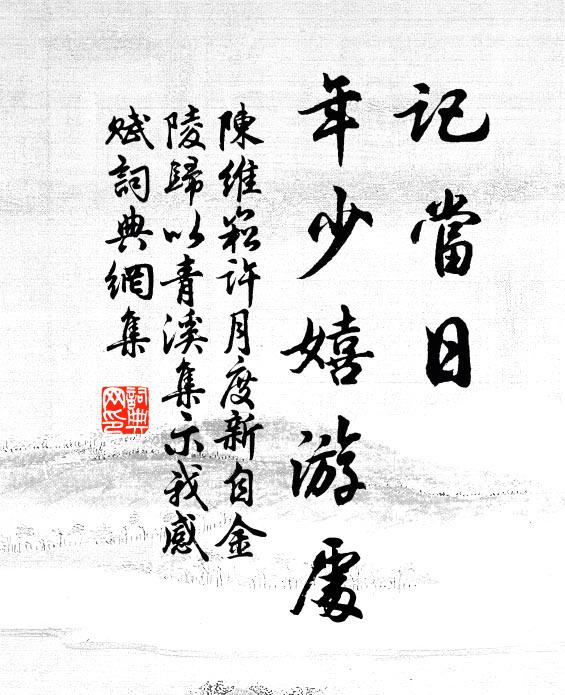 記當日
年少嬉游處
陳維崧許月度新自金
陵歸以青溪集示我感
賦詞典網集
詞典
网印